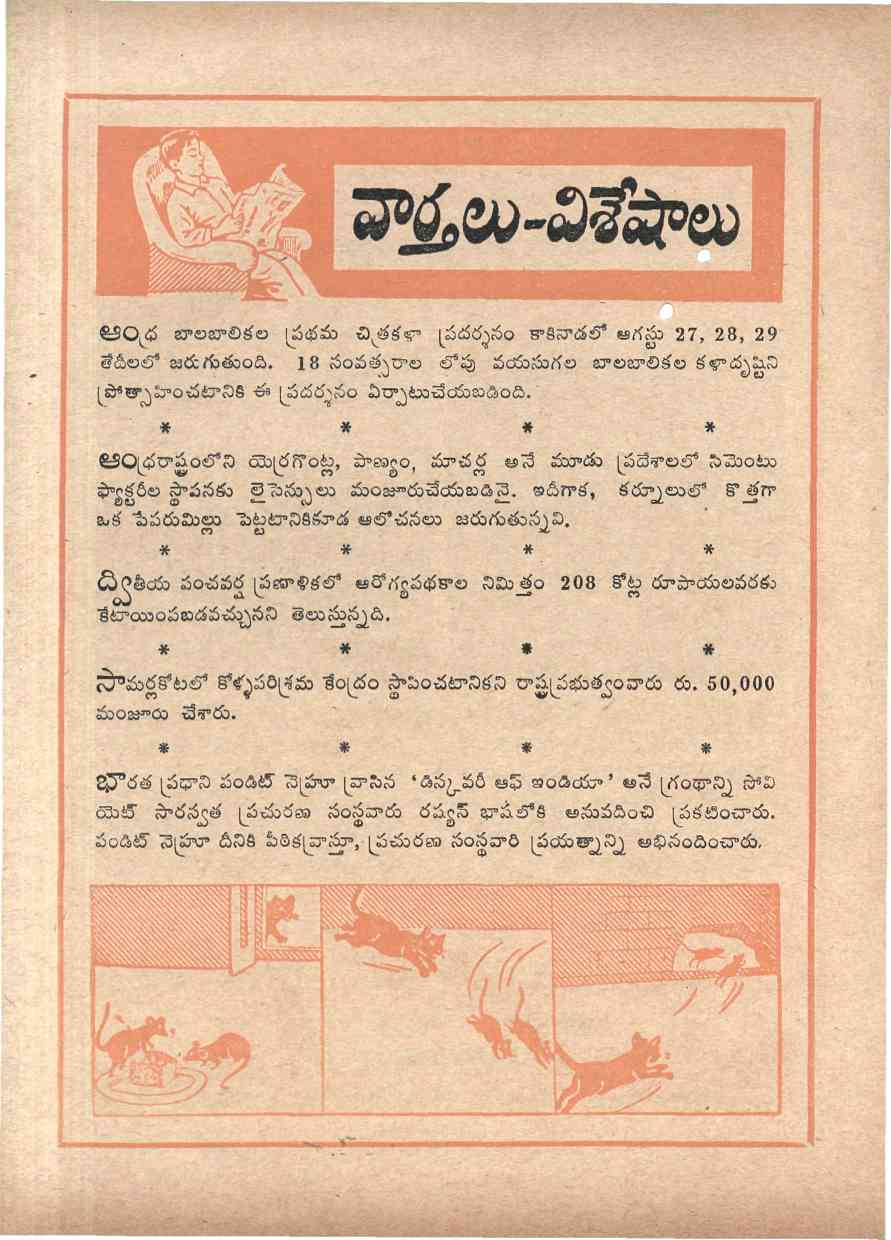 వార్తలు-విశేషాలు
ఆంధ్ర బాలబాలికల ప్రథమ చిత్రకళా ప్రదర్శనం కాకినాడలో ఆగస్టు 27, 28, 29
తేదీలలో జరుగుతుంది. 18 సంవత్సరాల లోపు వయసుగల బాలబాలికల కళాదృష్టిని
ప్రోత్సాహించటానికి ఈ ప్రదర్శనం ఏర్పాటుచేయబడింది.
* * * *
ఆంధ్రరాష్ట్రంలోని యెర్రగొంట్ల, పాణ్యం, మాచర్ల అనే మూడు ప్రదేశాలలో సిమెంటు
ఫ్యాక్టరీల స్థాపనకు లైసెన్సులు మంజూరుచేయబడినై. ఇదీగాక, కర్నూలులో కొత్తగా
ఒక పేపరుమిల్లు పెట్టటానికికూడ ఆలోచనలు జరుగుతున్నవి.
* * * *
ద్వితీయ పంచవర్ష ప్రణాళికలో ఆరోగ్యపథకాల నిమిత్తం 208 కోట్ల రూపాయలవరకు
కేటాయింపబడవచ్చునని తెలుస్తున్నది.
* * * *
సామర్లకోటలో కోళ్ళపరిశ్రమ కేంద్రం స్థాపించటానికని రాష్ట్రప్రభుత్వంవారు రు. 50,000
మంజూరు చేశారు.
* * * *
భారత ప్రధాని పండిట్ నెహ్రూ వ్రాసిన ‘డిస్కవరీ ఆఫ్ ఇండియా’ అనే గ్రంథాన్ని సోవి
యెట్ సారస్వత ప్రచురణ సంస్థవారు రష్యన్ భాషలోకి అనువదించి ప్రకటించారు.
పండిట్ నెహ్రూ దీనికి పీఠికవ్రాస్తూ, ప్రచురణ సంస్థవారి ప్రయత్నాన్ని అభినందించారు.